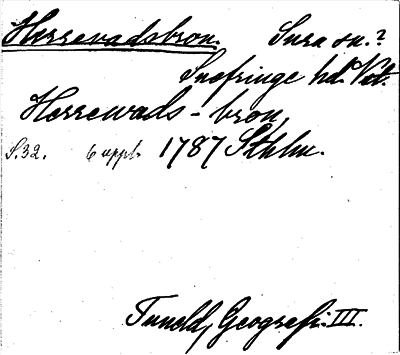 Herrevadsbron. Sura sn.?
Snefringe hd. Vstl.
Herrewads-bron,
S.32. 6 uppl. 1787 Sthlm.
Tuneld, Geografi. III.